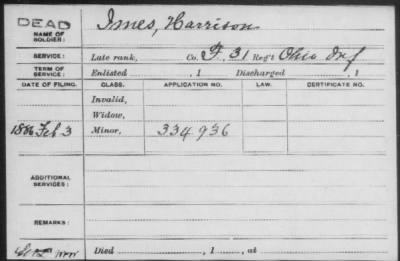 DEAD
NAME OF SOLDIER: Imes, Harrison
SERVICE: Late rank, Co. F, 31 Reg't Ohio Inf
TERM OF SERVICE: Enlisted , 1 Discharged , 1
DATE OF FILING. CLASS. APPLICATION NO. LAW. CERTIFICATE NO.
Invalid,
Widow,
1886 Feb 3 Minor, 334 936
ADDITIONAL SERVICES:
REMARKS:
Died , 1 , at